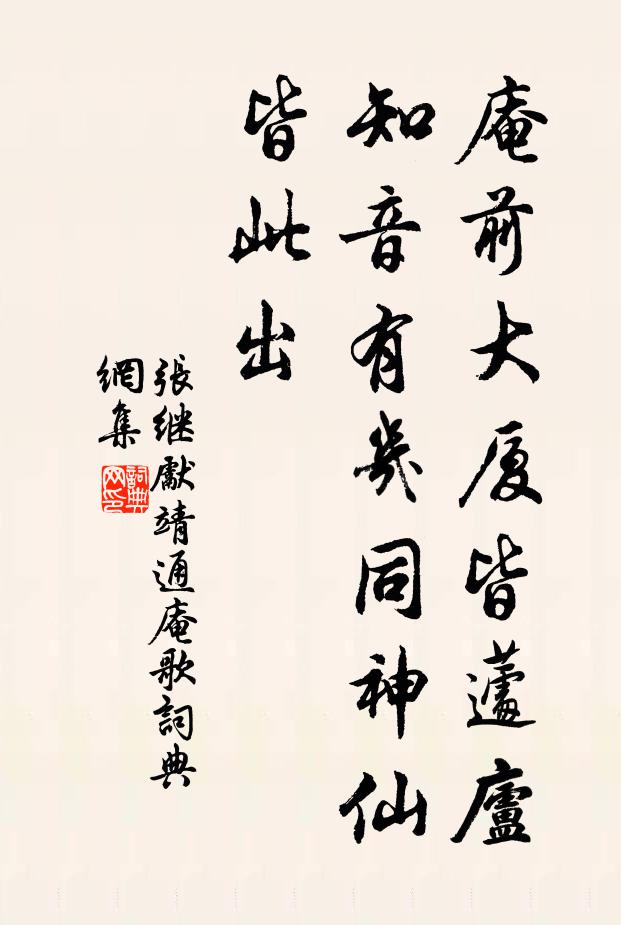 庵前大厦皆蘧廬
知音有幾同神仙
皆此出
張継獻靖通庵歌詞典
網集
詞典
网印